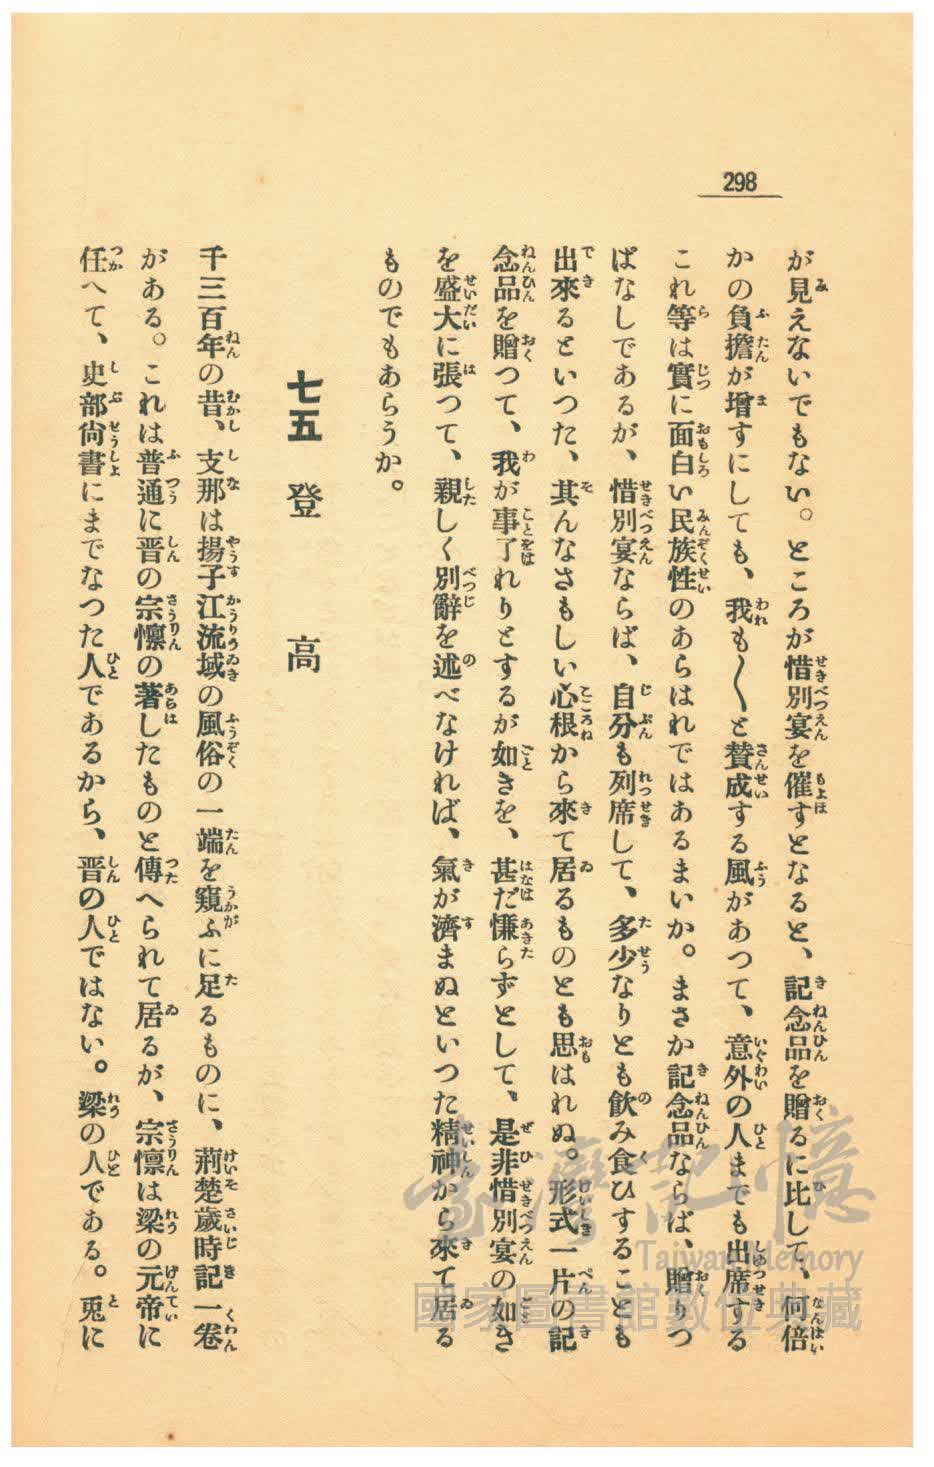 298
が見えないでもない。ところが惜別宴を催すとなると、記念品を贈るに比して、何倍
かの負擔が增すにしても、我も〱と賛成する風があつて、意外の人までも出席する
これ等は實に面白い民族性のあらはれではあるまいか。まさか記念品ならば、贈りつ
ぱなしであるが、惜別宴ならば、自分も列席して、多少なりとも飮み食ひすることも
出來るといつた、其んなさもしい心根から來て居るものとも思はれぬ。形式一片の記
念品を贈つて、我が事了れりとするが如きを、甚だ慊らずとして、是非惜別宴の如き
を盛大に張つて、親しく別辭を述べなければ、氣が濟まぬといつた精神から來て居る
ものでもあらうか。
七五 登高
千三百年の昔、支那は揚子江流域の風俗の一端を窺ふに足るものに、荊楚歲時記一卷
がある。これは普通に晋の宗懍の著したものと傳へられて居るが、宗懍は梁の元帝に
任へて、史部尙書にまでなつた人であるから、晋の人ではない。梁の人である。兎に
臺灣記憶
Taiwan Memory
國家圖書館數位典藏